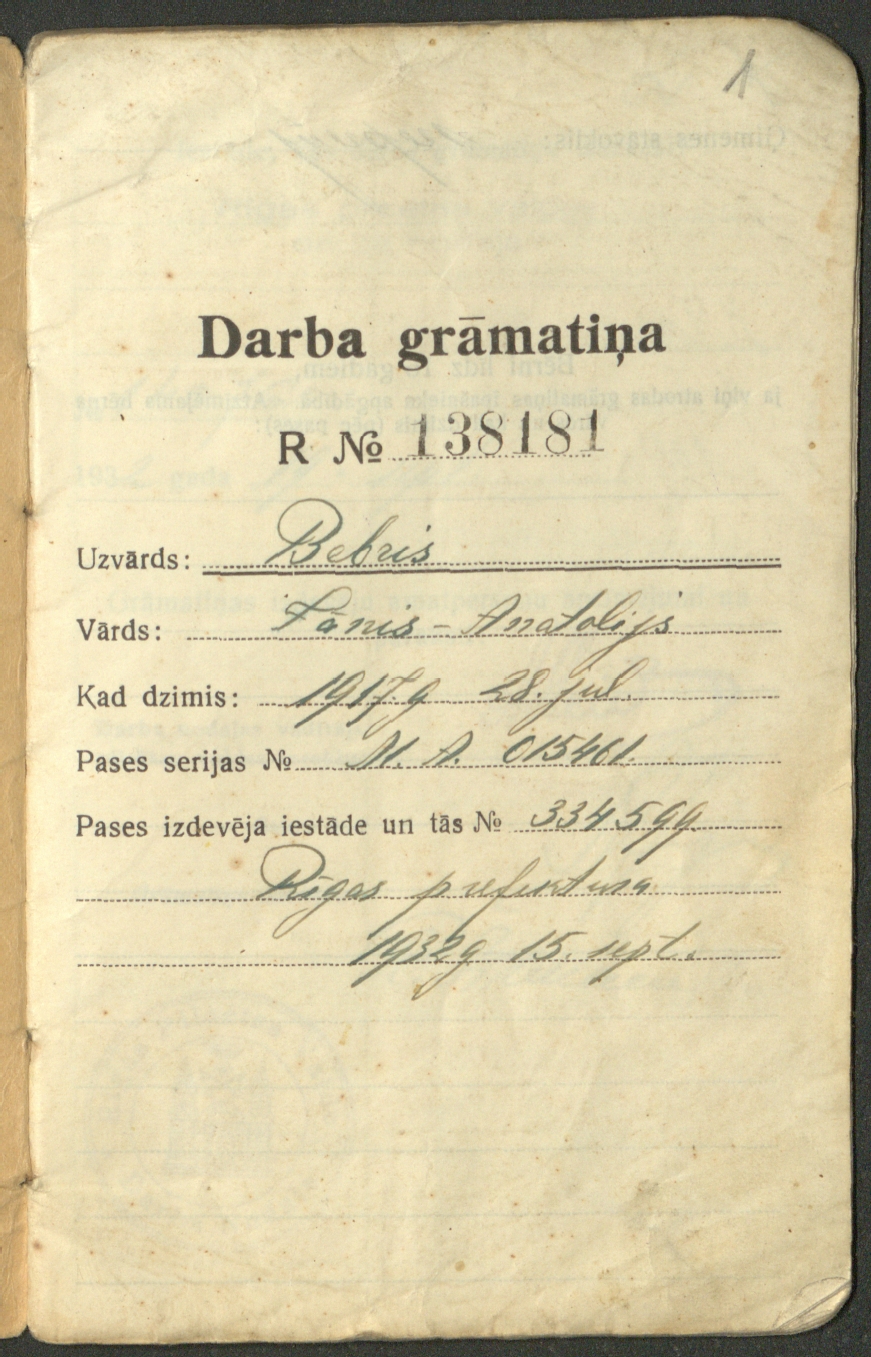 1
Darba grāmatiņa
R № 138181
Uzvārds: Bebris
Vārds: Jānis - Anatolijs
Kad dzimis: 1917.g 28. jul.
Pases serijas № M. A. 015461.
Pases izdevēja iestāde un tās № 334599
Rīgas prefektura
1932g 15. sept.